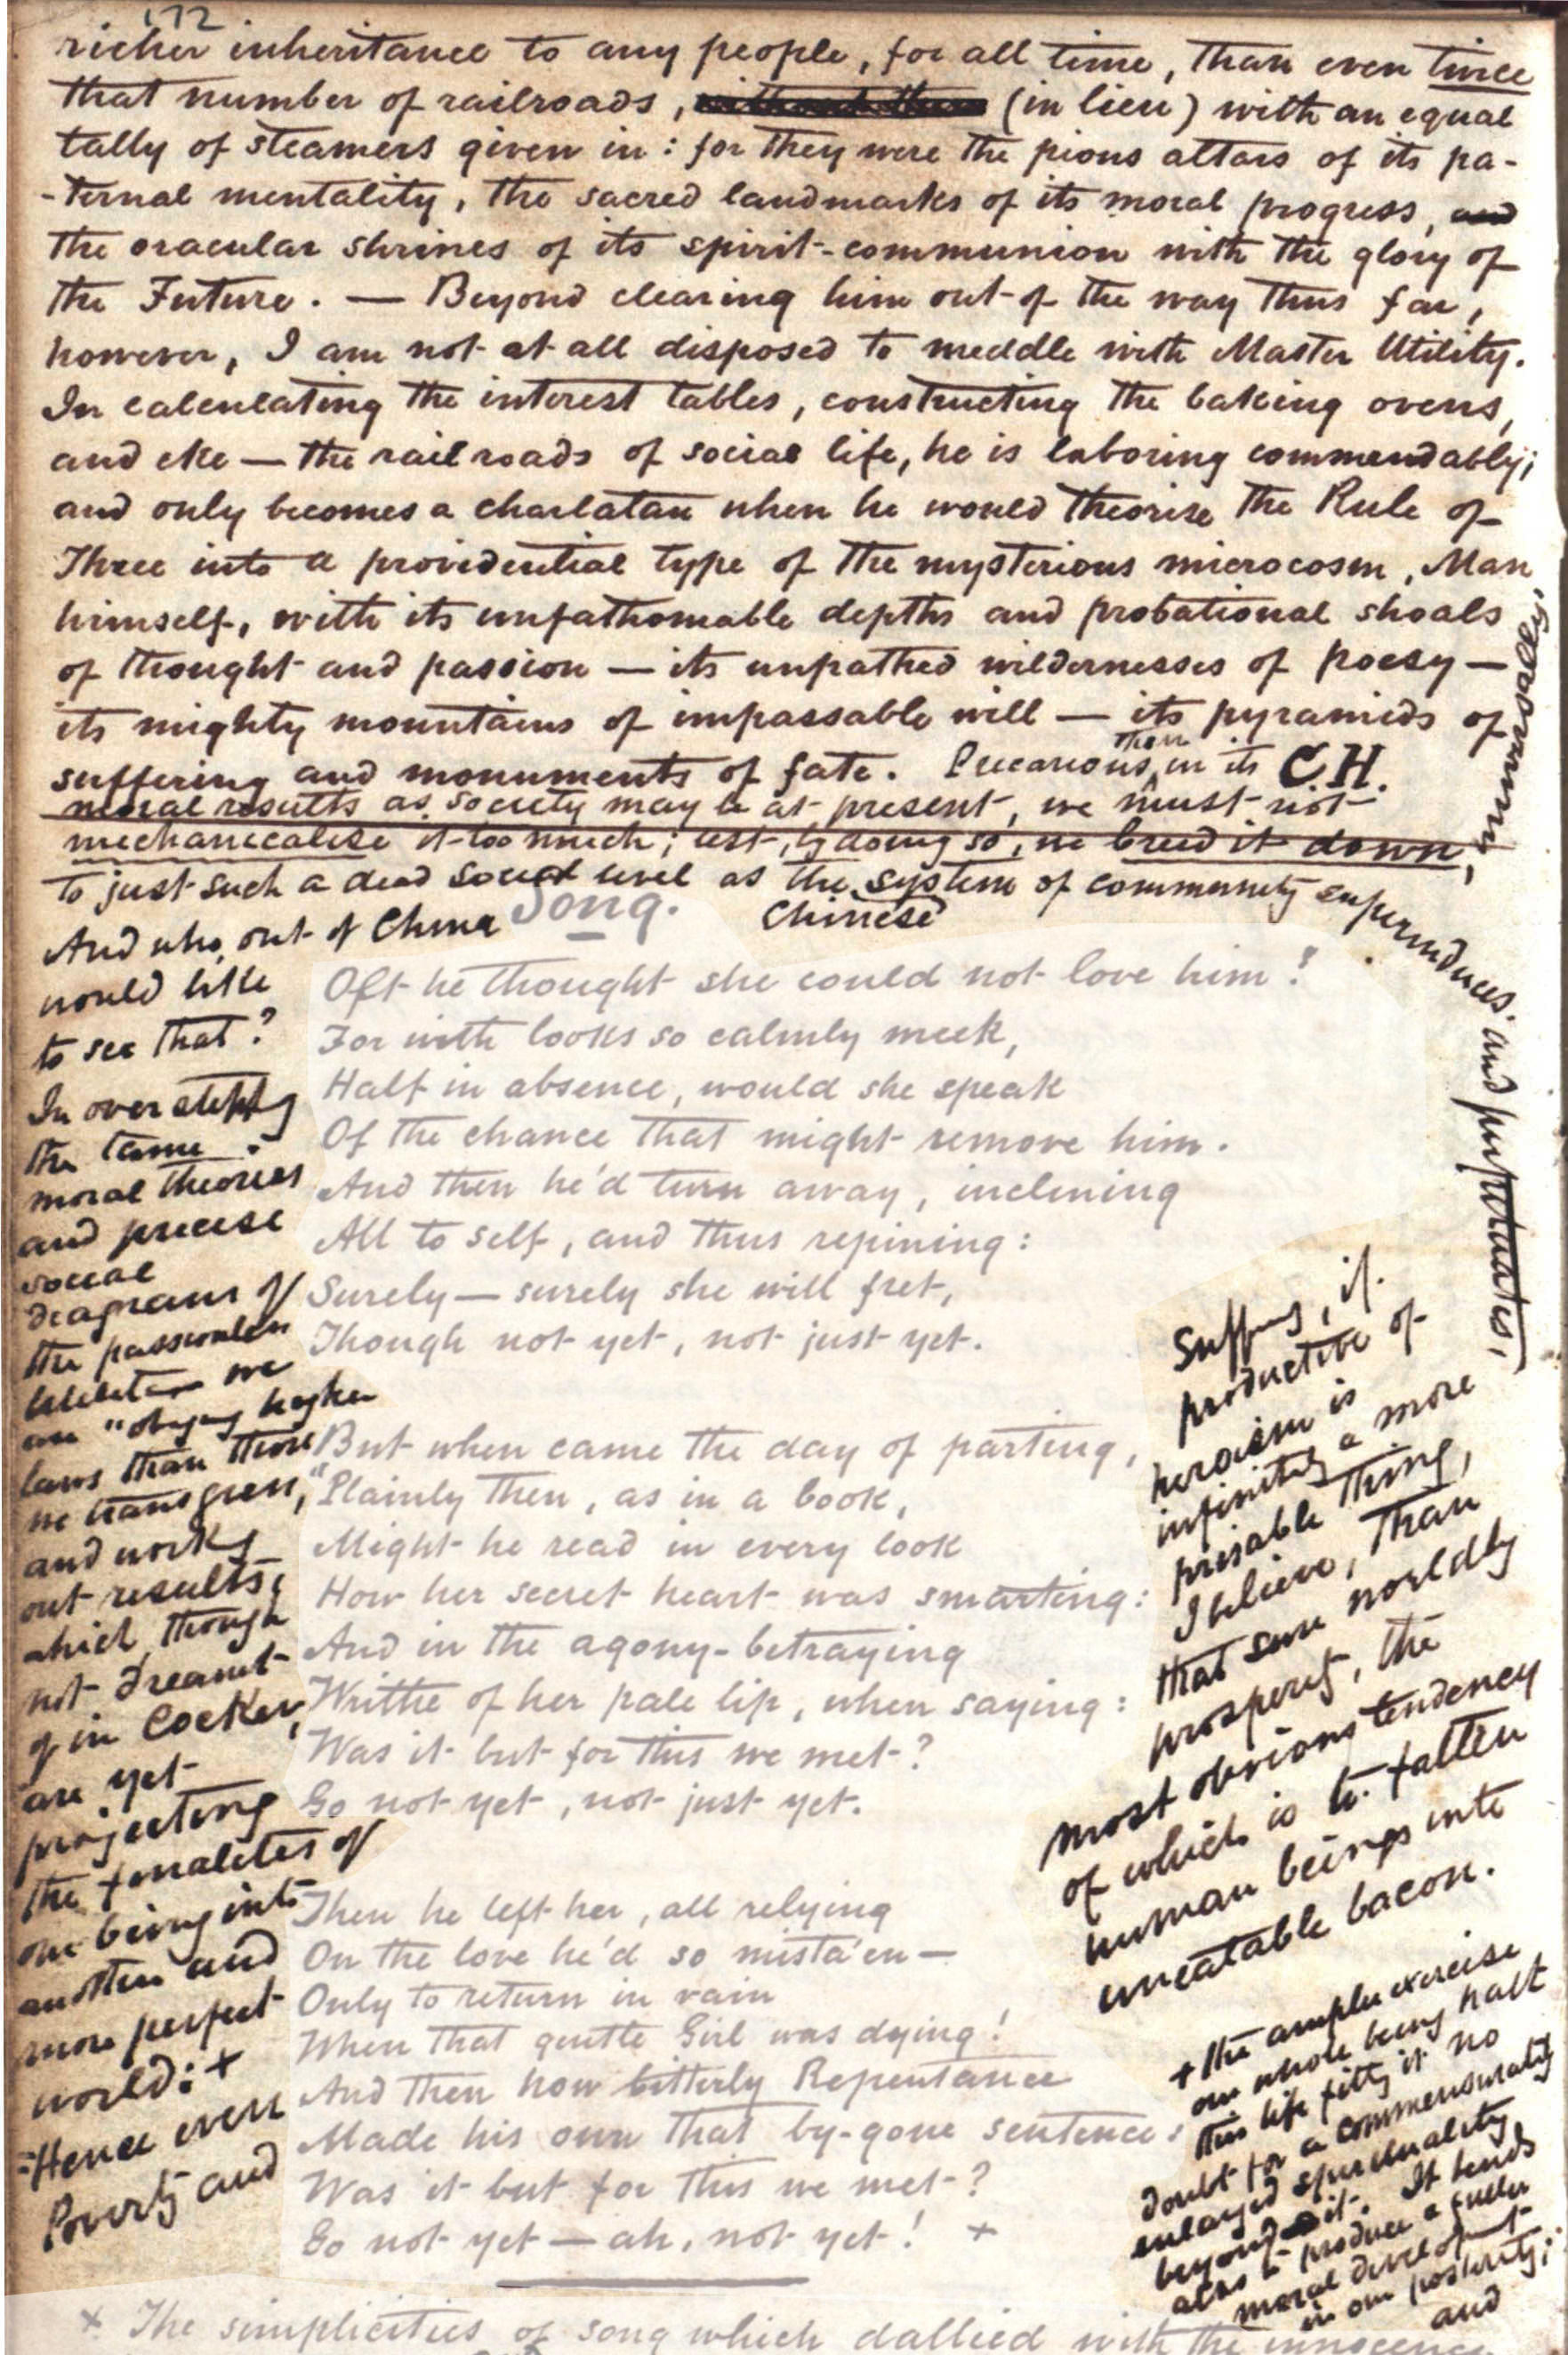 172
richer inheritance to any people, for all time, than even twice
that number of railroads, (in lieu) with an equal
tally of steamers given in: for they were the pious altars of its pa-
-ternal mentality, the sacred landmarks of its moral progress, and
the oracular shrines of its spirit-communion with the glory of
the Future. — Beyond clearing him out of the way thus far,
however, I am not at all disposed to meddle with Master Utility.
In calculating the interest tables, constructing the baking ovens,
and eke — the railroads of social life, he is laboring commendably;
and only becomes a charlatan when he would theorise the Rule of
Three into a providential type of the mysterious microcosm, Man
himself, with its unfathomable depths and probational shoals
of thought and passion — its unpathed wildernesses of poesy —
its mighty mountains of impassable will — its pyramids of
suffering and monuments of fate. Precarious, then in its C.H.
moral results as society may be at present, we must not
mechanicalise it too much; lest, by doing so, we breed it down,
to just such a dead social level as the system of community superinduces. and
Chinese
unswervingly.
And who, out of China
would like
to see that?
In overstepping
the tame
moral theories
and precise
social
diagrams of
the passionless
we
are "obeying higher
laws than those
we transgress,"
and working
out results,
which though
not dreamt
of in Cocker,
are yet
projecting
the finalities of
one being into
another and
more perfect
world: +
=Hence even
Poverty and
Suffering, if
productive of
heroism is
infinitely a more
prisable thing,
I believe, than
that sure worldly
prosperity, the
most obvious tendency
of which is to fatten
human beings into
uneatable bacon.
+ the ampler exercise
our whole being hath
this life fitting it no
doubt for a commensurately
enlarged spirituality
beyond it. It tends
also to produce a fuller
moral development
in our posterity;
and
Song.
Oft he thought she could not love him!
For with looks so calmly meek,
Half in absence, would she speak
Of the chance that might remove him.
And then he'd turn away, inclining
All to self, and thus repining:
Surely — surely she will fret,
Though not yet, not just yet.
But when came the day of parting,
Plainly then, as in a book,
Might he read in every look
How her secret heart was smarting:
And in the agony-betraying
Writhe of her pale lip, when saying:
Was it but for this we met?
Go not yet, not just yet.
Then he left her, all relying
On the love he'd so mista'en —
Only to return in vain
When that gentle Girl was dying!
And then how bitterly Repentance
Made his own that by-gone sentence:
Was it but for this we met?
Go not yet — ah, not yet! +
+ The simplicities of song which dallied with the innocence